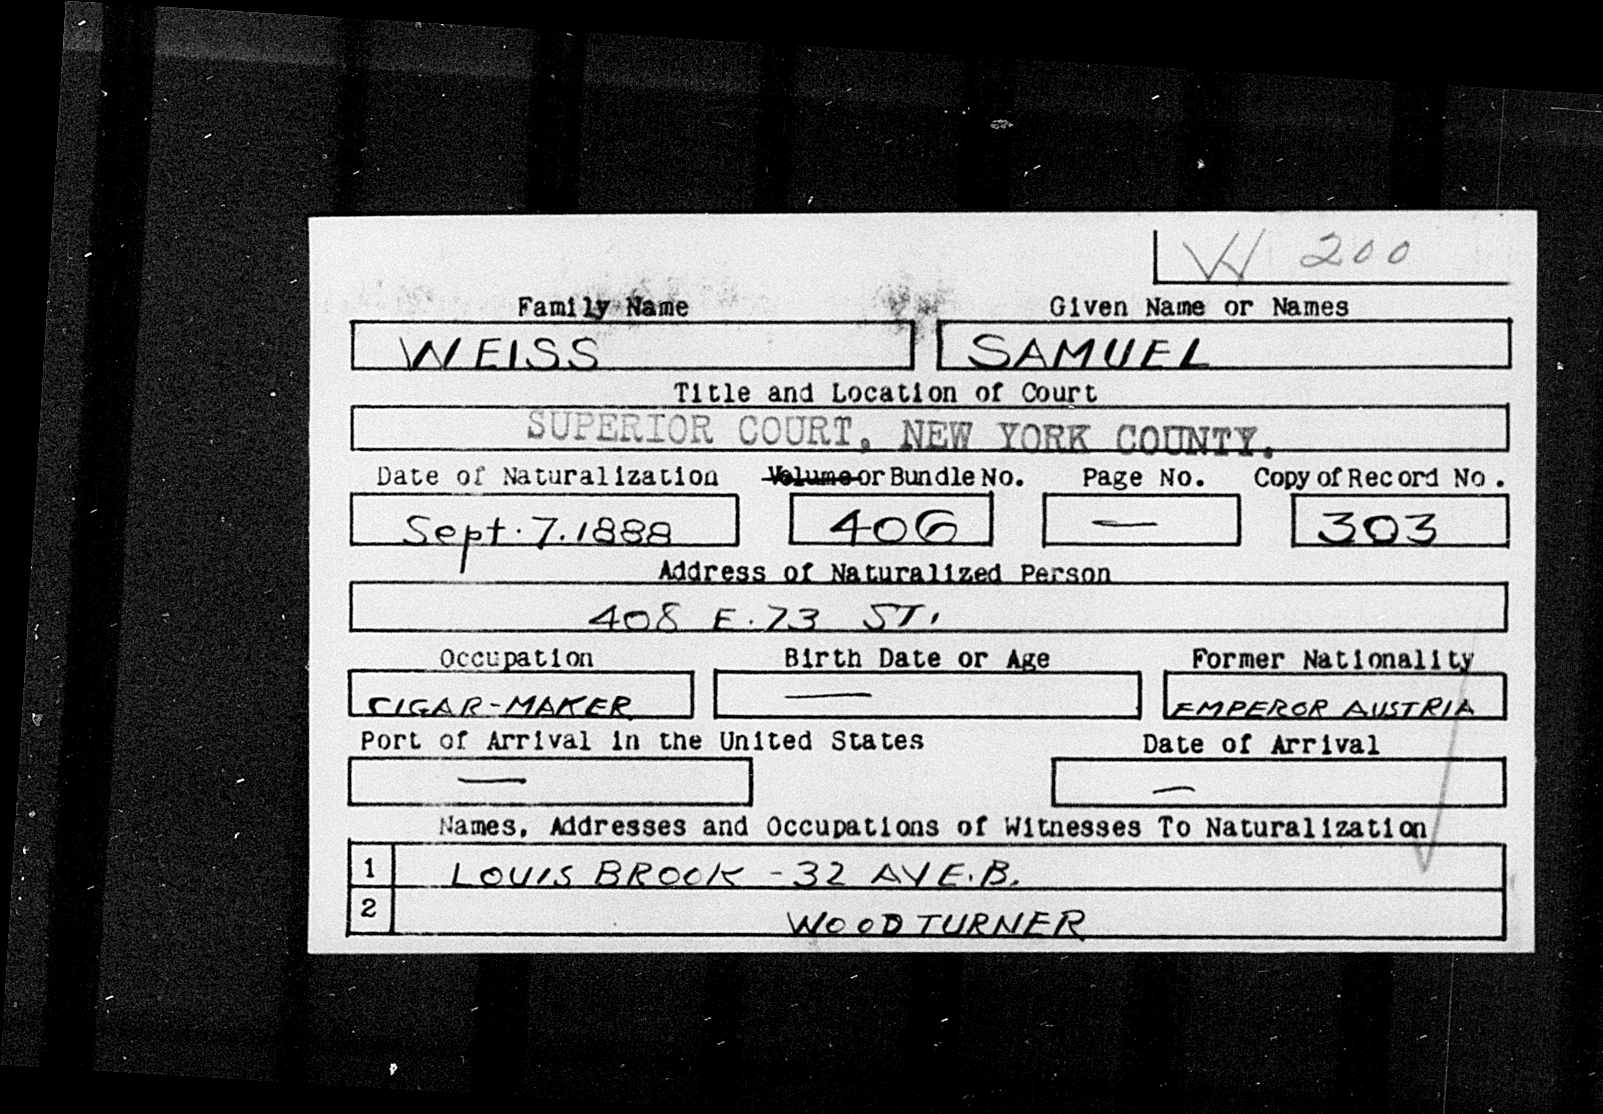 W 200
Family Name Given Name or Names
WEISS SAMUEL
Title and Location of Court
SUPERIOR COURT, NEW YORK COUNTY.
Date of Naturalization Volume or Bundle No. Page No. Copy of Record No.
Sept. 7. 1888 406 — 303
Address of Naturalized Person
408 E. 73 ST.
Occupation Birth Date or Age Former Nationality
CIGAR-MAKER — EMPEROR AUSTRIA
Port of Arrival in the United States Date of Arrival
— —
Names, Addresses and Occupations of Witnesses To Naturalization
1 LOUIS BROOK - 32 AVE. B.
2 WOOD TURNER